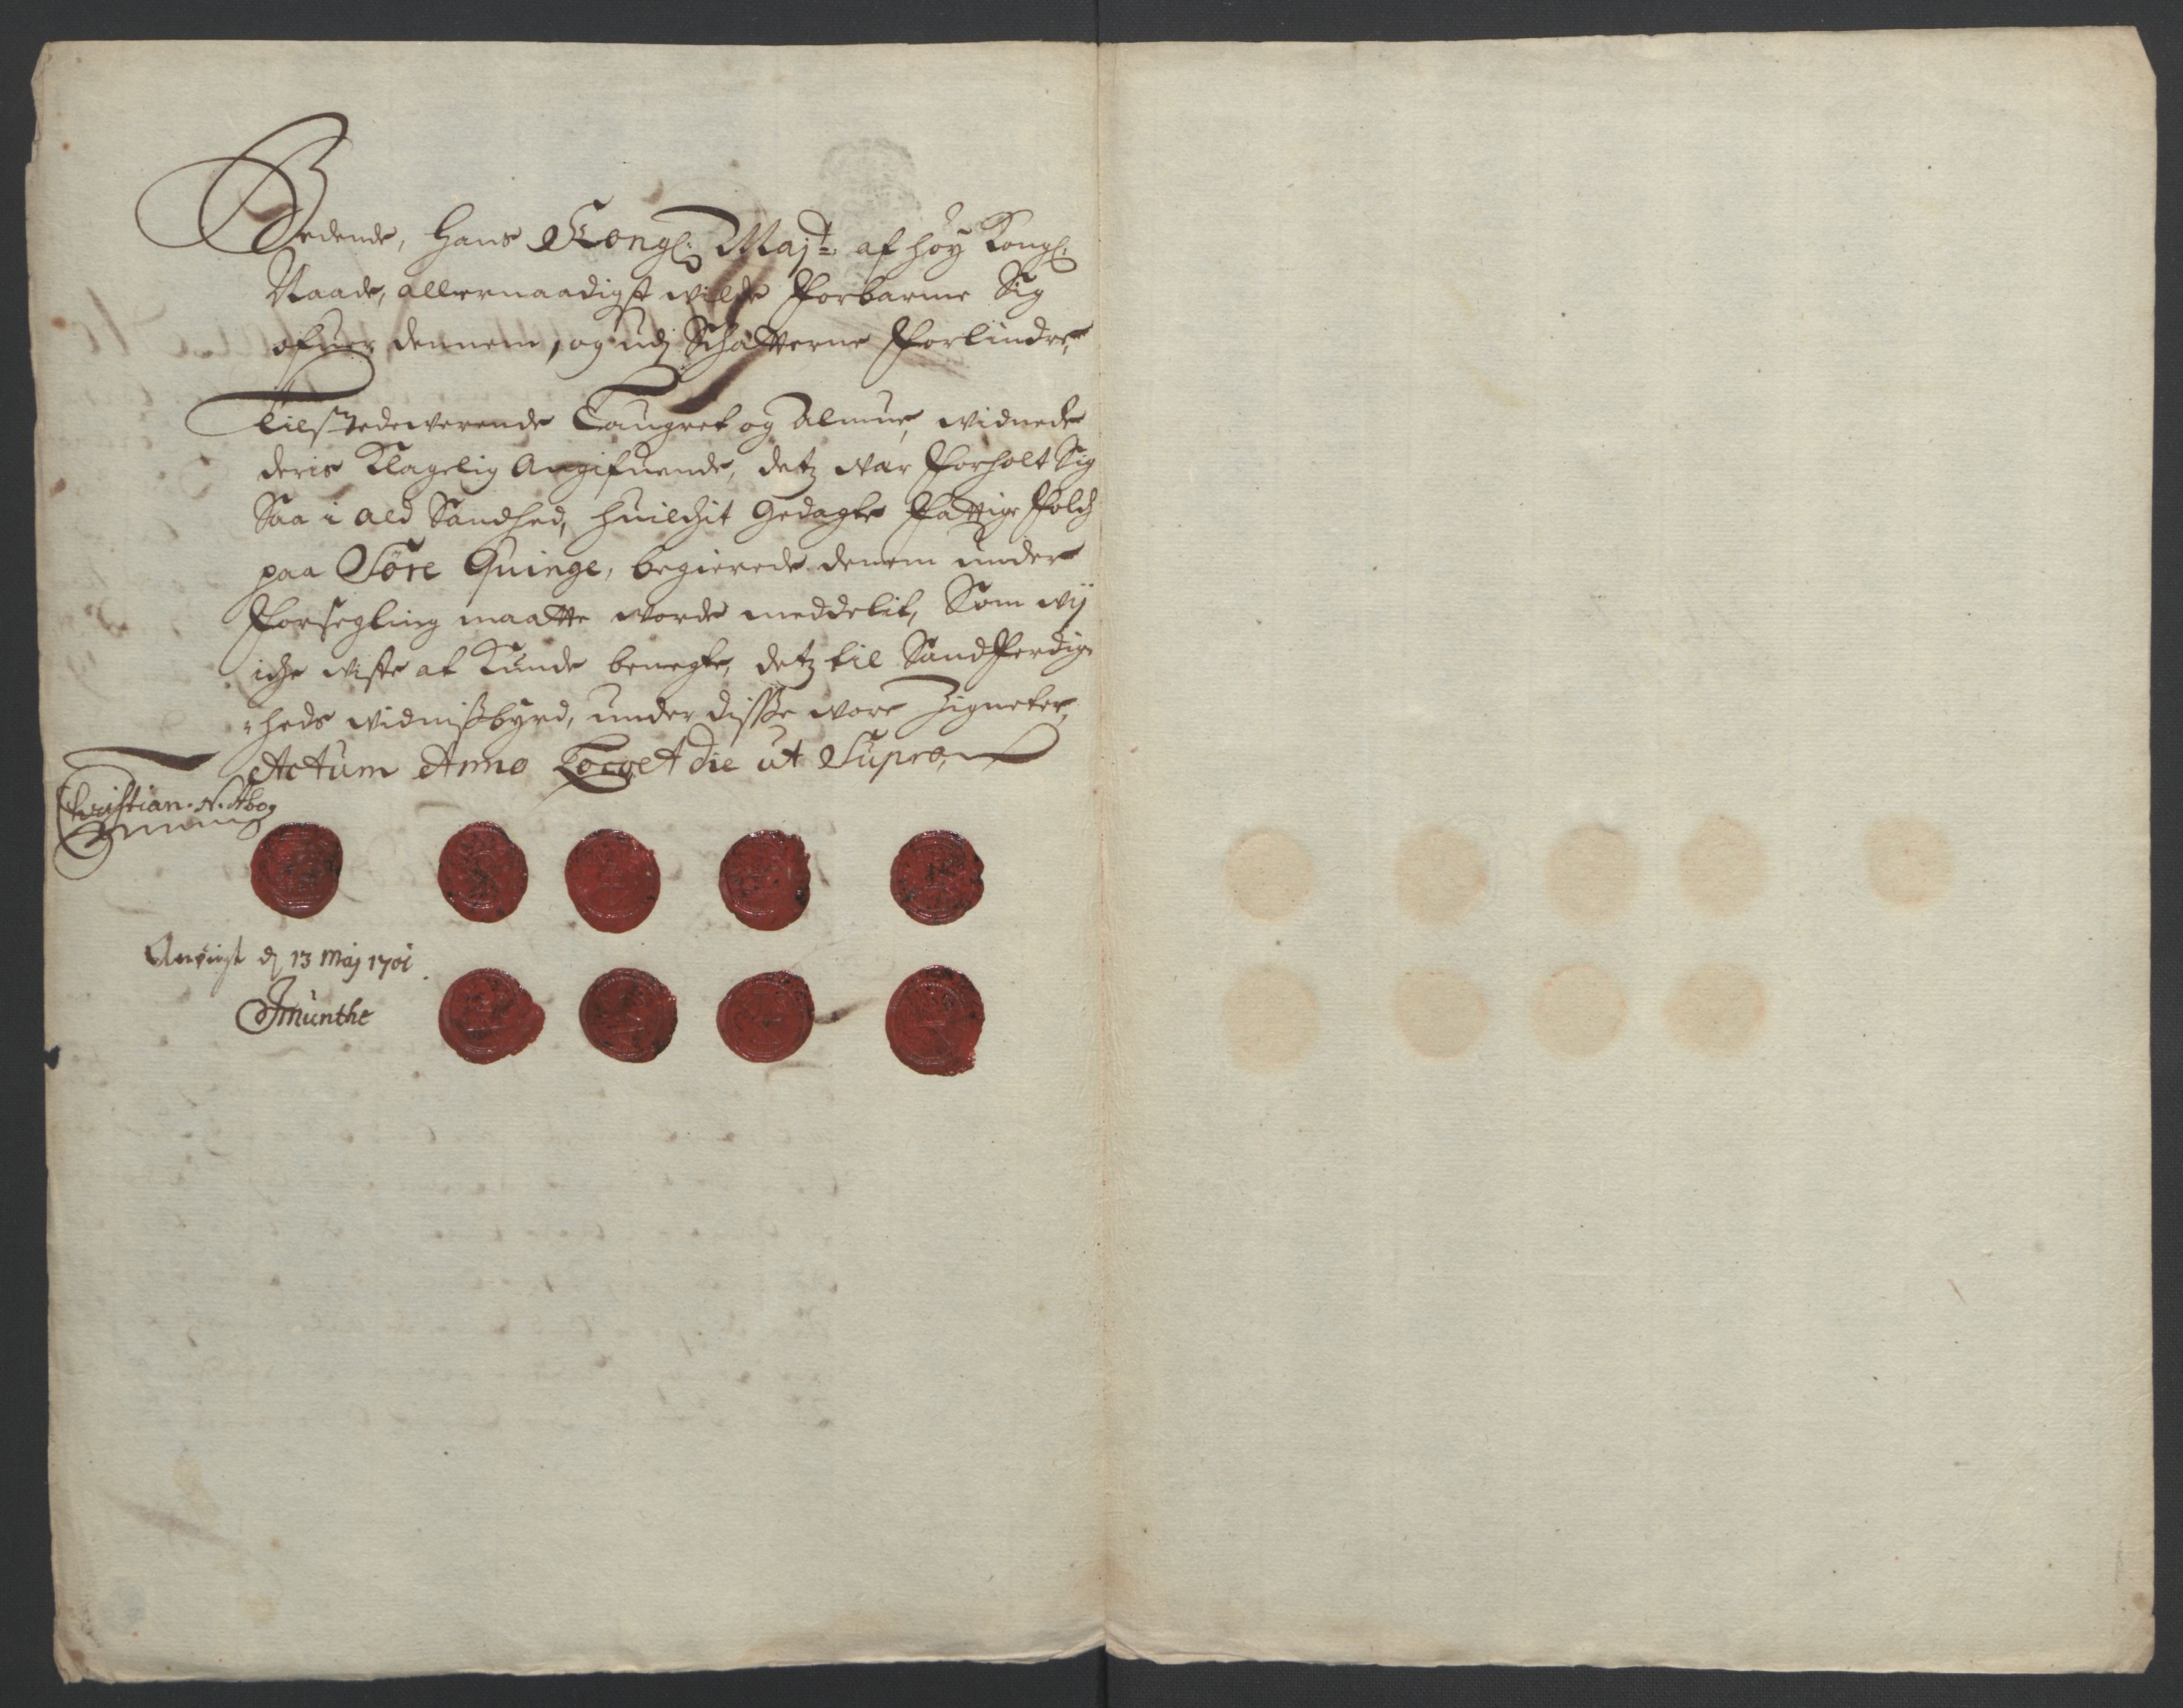 Bedende, Hans Kongl: Maj:t af høy Kongl:
Naade, allernaadigst wilde Forbarme Sig
ofuer dennem, og udj Schatterne Forlindre,
Tilstedewerende Laugret og Almue, widnede
deris Klagelig Angifuende, detz war Forholt Sig
Saa i ald Sandhed, huilchit Gedagte Fattige Folch
paa Søre Quinge, begierede denem under
Forsegling maatte worde meddelit, Som wij
iche wiste at Kunde benegte, detz til Sandferdig-
-heds widnißbyrd, under disße wore Zigneter,
Actum Anno Loco et die ut Supra,
Christian. N. 
Anviist d 13 Maj 1701
Munthe